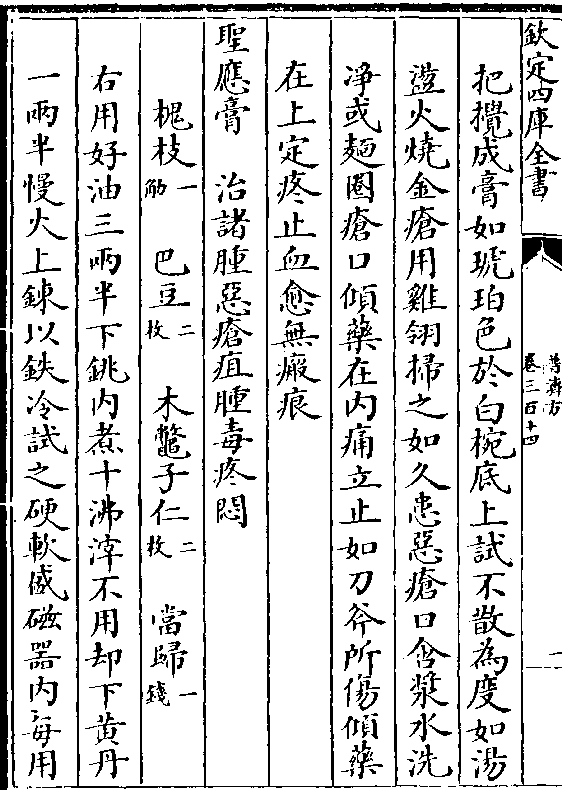 欽定四庫全書
普濟方
卷三百十四
一
把攪成膏如琥珀色於白椀底上試不散為度如湯
盪火燒金瘡用雞翎掃之如久患惡瘡口含漿水洗
淨或麵圈瘡口傾藥在内痛立止如刀斧所傷傾藥
在上定疼止血愈無瘢痕
聖應膏 治諸腫惡瘡疽腫毒疼悶
槐枝一觔 巴豆二枚 木鼈子仁二枚 當歸一錢
右用好油三兩半下銚内煮十沸滓不用却下黄丹
一兩半慢火上鍊以鉄冷試之硬軟盛磁器内每用